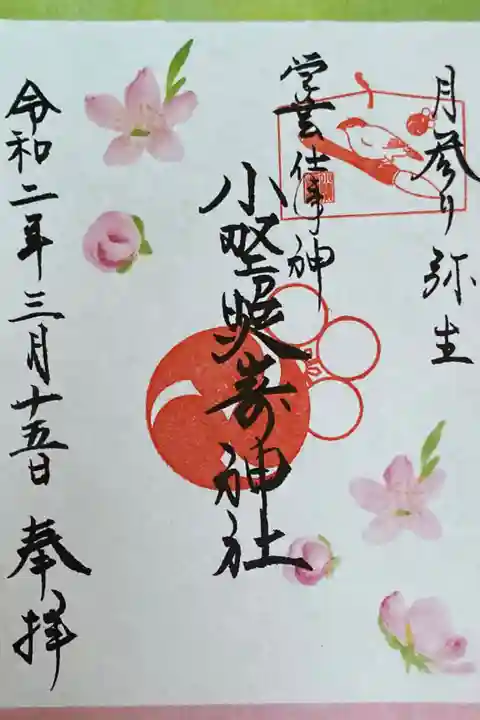 月参り 弥生
学芸仕事神
小野照崎神社
令和二年三月十五日 奉拝